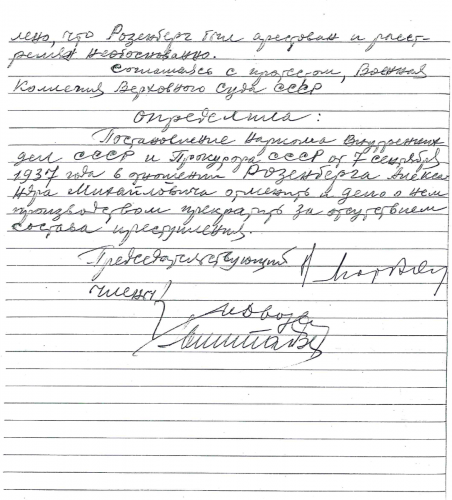 лено, что Розенберг был арестован и расст-
релян необоснованно.
Соглашаясь с протестом, Военная
Коллегия Верховного Суда СССР
определила:
Постановление Наркома Внутренних
дел СССР и Прокурора СССР от 7 сентября
1937 года в отношении Розенберга Алекса-
ндра Михайловича отменить и дело о нем
производством прекратить за отсутствием
состава преступления.
Председательствующий
члены